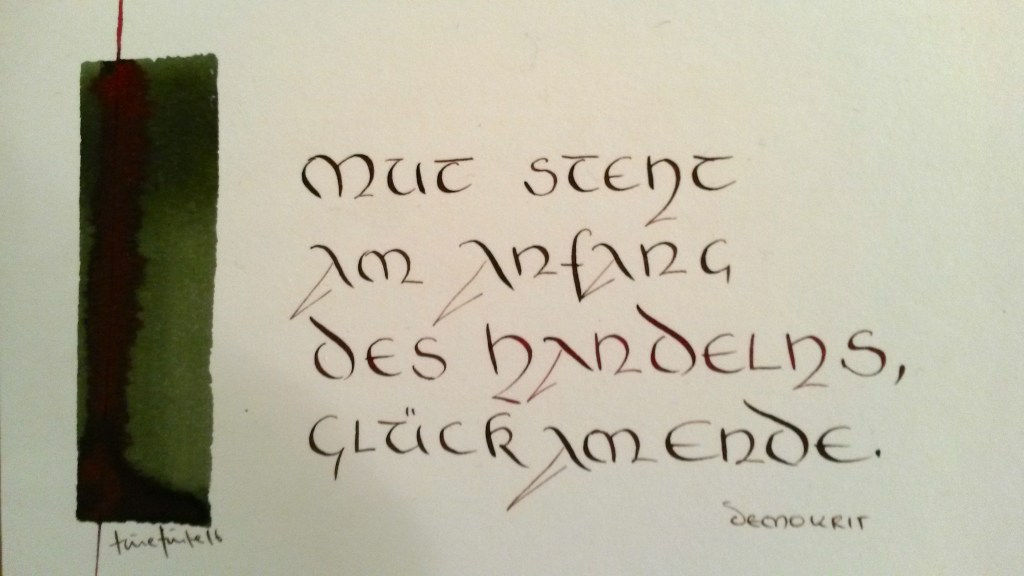 Mut steht
am Anfang
des Handelns,
Glück am Ende.
Demokrit